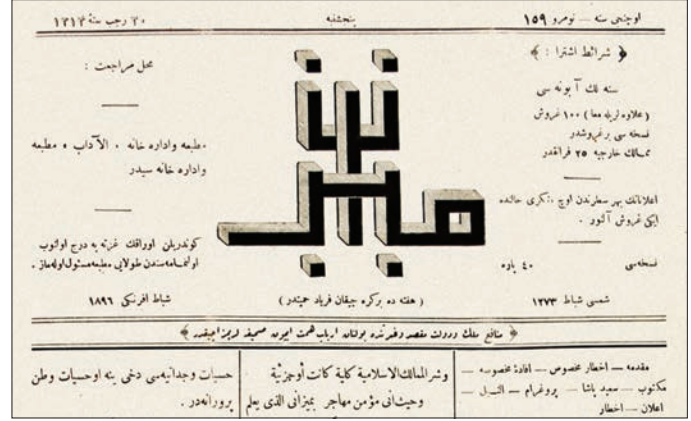 اوچنجی سنه — نومرو ١٥٩
پنجشنبه
٣٠ رجب سنهٔ ١٣١٣
شرائط اشترا :
سنه لك آبونه سی
(علاوه لریله معا) ١٠٠ غروش
نسخه سی بر غروشدر
ممالك خارجیه ٢٥ فرانقدر
اعلاناتك بهر سطرندن اوچ ، تكری حالنده
ایكی غروش آلنور .
نسخه سی ٤٠ پاره
شمسی شباط ١٢٧٣
میزان
( هفته ده بركره چیقان فریاد حمیتدر )
محل مراجعت :
مطبعه واداره خانه ، الآداب ، مطبعه
واداره خانه سیدر
كوندریلن اوراقك غزته یه درج اولنوب
اولنمامه سندن طولایی مطبعه مسئول اوله ماز .
شباط افرنكی ١٨٩٦
منافع ملك ودولت مقصد وفعرنده بولنان ارباب همت ایچون صحیفه لریمز آچیقدر
مقدمه — اخطار مخصوص — افادهٔ مخصوصه —
مكتوب — سعید پاشا — پروغرام — السبیل —
اعلان — اخطار
وشر الممالك الاسلامیة كلیة كانت أو جزئیة
وحیث انی مؤمن مهاجر بمیزانی الذی یعلم
حسیات وجدانیه سی دخی ینه او حسیات وطن
پرورانه در .